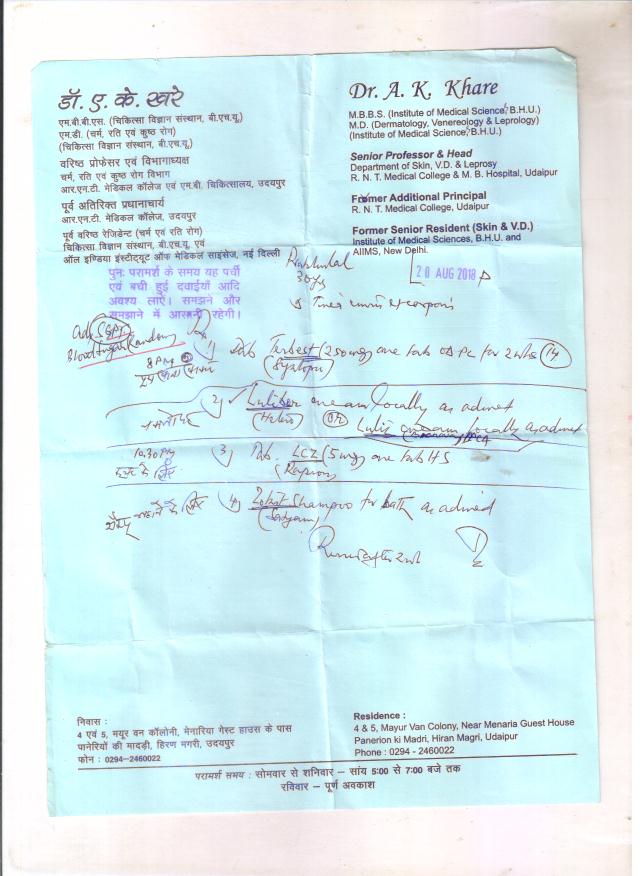 डॉ. ए. के. खरे
एम.बी.बी.एस. (चिकित्सा विज्ञान संस्थान, बी.एच.यू.)
एम.डी. (चर्म, रति एवं कुष्ठ रोग)
(चिकित्सा विज्ञान संस्थान, बी.एच.यू.)
वरिष्ठ प्रोफेसर एवं विभागाध्यक्ष
चर्म, रति एवं कुष्ठ रोग विभाग
आर.एन.टी. मेडिकल कॉलेज एवं एम.बी. चिकित्सालय, उदयपुर
पूर्व अतिरिक्त प्रधानाचार्य
आर.एन.टी. मेडिकल कॉलेज, उदयपुर
पूर्व वरिष्ठ रेजिडेंट (चर्म एवं रति रोग)
चिकित्सा विज्ञान संस्थान, बी.एच.यू. एवं
ऑल इण्डिया इंस्टीट्यूट ऑफ मेडिकल साइंसेज, नई दिल्ली
Dr. A. K. Khare
M.B.B.S. (Institute of Medical Science, B.H.U.)
M.D. (Dermatology, Venereology & Leprology)
(Institute of Medical Science, B.H.U.)
Senior Professor & Head
Department of Skin, V.D. & Leprosy
R. N. T. Medical College & M. B. Hospital, Udaipur
Former Additional Principal
R. N. T. Medical College, Udaipur
Former Senior Resident (Skin & V.D.)
Institute of Medical Sciences, B.H.U. and
AIIMS, New Delhi.
पुनः परामर्श के समय यह पर्ची
एवं बची हुई दवाईयाँ आदि
अवश्य लाएं। समझने और
समझाने में आसानी रहेगी।
20 AUG 2018
30 yrs
Adv SGPT
Blood Sugar (Random)
8 PM
1) Tab Terbest (250mg) one tab OD PC for 2 wks 14
(Systopic)
2) Luliber cream locally as advised
OR
locally as advised
10.30 PM
3) Tab. LCZ (5 mg) one tab HS
4) Shampoo for bath as advised
निवास :
4 एवं 5, मयूर वन कॉलोनी, मेनारिया गेस्ट हाउस के पास
पानेरियों की मादड़ी, हिरण मगरी, उदयपुर
फोन : 0294-2460022
Residence :
4 & 5, Mayur Van Colony, Near Menaria Guest House
Panerion ki Madri, Hiran Magri, Udaipur
Phone : 0294 - 2460022
परामर्श समय : सोमवार से शनिवार – सांय 5:00 से 7:00 बजे तक
रविवार – पूर्ण अवकाश